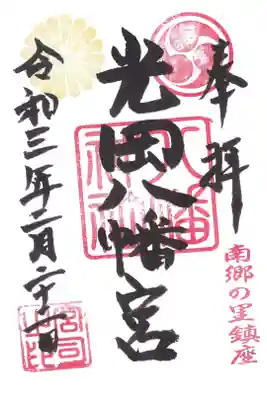 奉拝
光岡八幡宮
令和三年二月二十一日
南郷の里鎮座